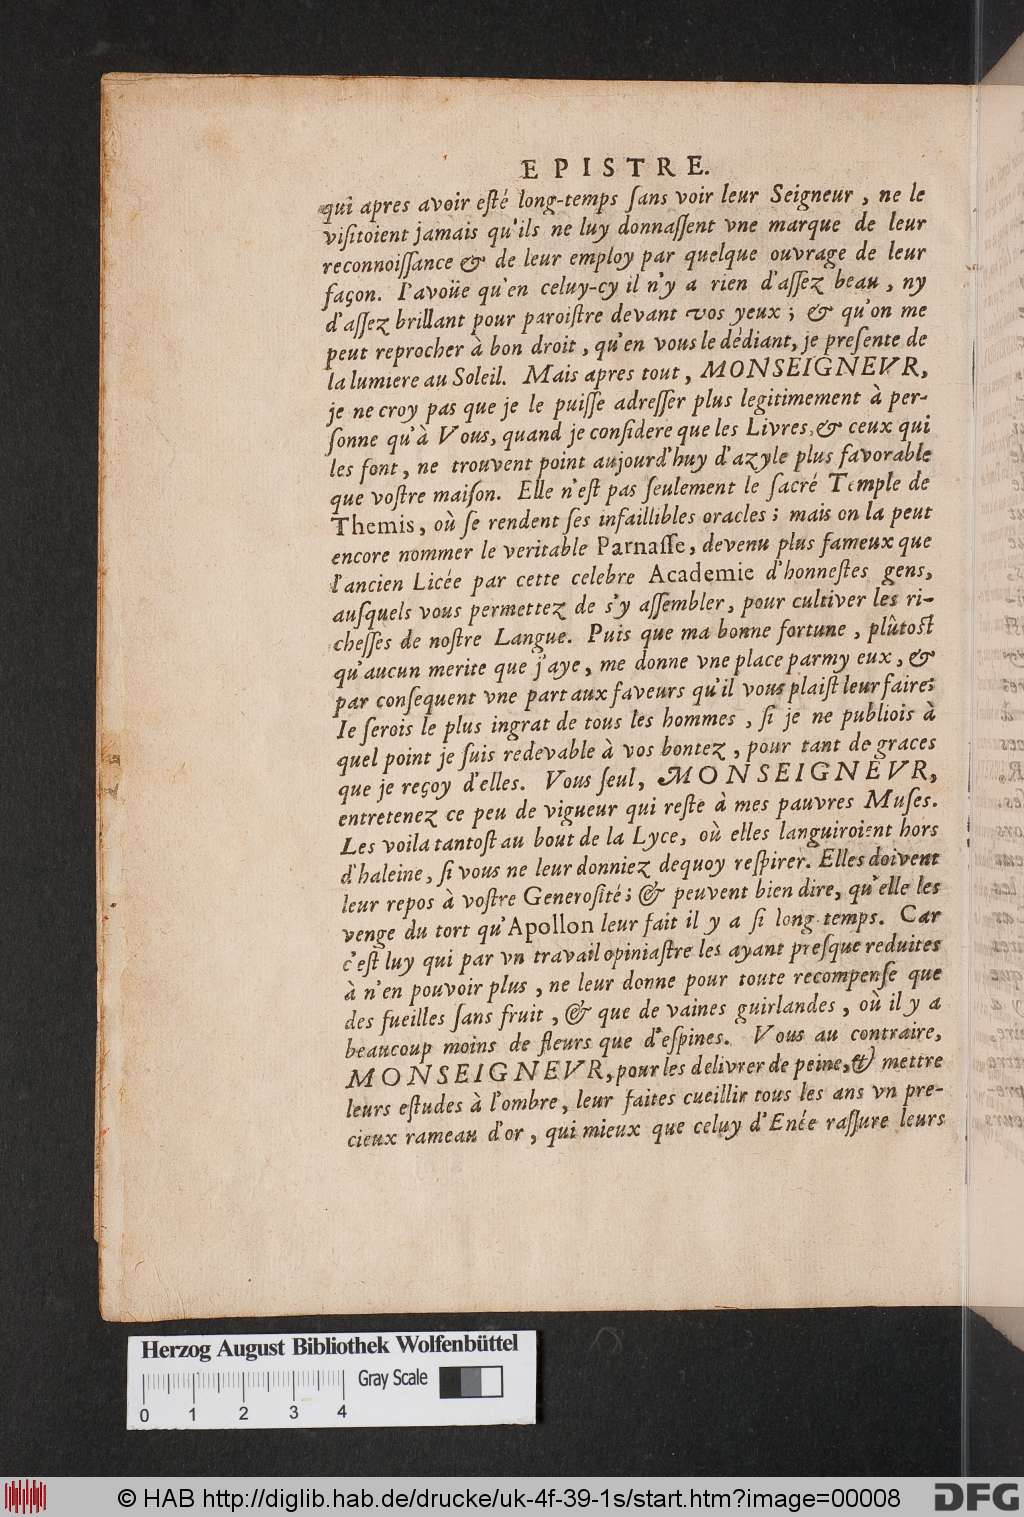 EPISTRE.
qui apres avoir esté long-temps ſans voir leur Seigneur, ne le
viſitoient jamais qu'ils ne luy donnaſſent vne marque de leur
reconnoiſſance & de leur employ par quelque ouvrage de leur
façon. I'avoüe qu'en celuy-cy il n'y a rien d'aſſez beau, ny
d'aſſez brillant pour paroiſtre devant vos yeux; & qu'on me
peut reprocher à bon droit, qu'en vous le dédiant, je preſente de
la lumiere au Soleil. Mais apres tout, MONSEIGNEVR,
je ne croy pas que je le puiſſe adreſſer plus legitimement à per-
ſonne qu'à Vous, quand je conſidere que les Livres, & ceux qui
les font, ne trouvent point aujourd'huy d'azyle plus favorable
que voſtre maiſon. Elle n'eſt pas ſeulement le ſacré Temple de
Themis, où ſe rendent ſes infaillibles oracles; mais on la peut
encore nommer le veritable Parnaſſe, devenu plus fameux que
l'ancien Licée par cette celebre Academie d'honneſtes gens,
auſquels vous permettez de s'y aſſembler, pour cultiver les ri-
cheſſes de noſtre Langue. Puis que ma bonne fortune, plûtoſt
qu'aucun merite que j'aye, me donne vne place parmy eux, &
par conſequent vne part aux faveurs qu'il vous plaiſt leur faire;
Ie ſerois le plus ingrat de tous les hommes, ſi je ne publiois à
quel point je ſuis redevable à vos bontez, pour tant de graces
que je reçoy d'elles. Vous ſeul, MONSEIGNEVR,
entretenez ce peu de vigueur qui reſte à mes pauvres Muſes.
Les voila tantoſt au bout de la Lyce, où elles languiroient hors
d'haleine, ſi vous ne leur donniez dequoy reſpirer. Elles doivent
leur repos à voſtre Generoſité; & peuvent bien dire, qu'elle les
venge du tort qu'Apollon leur fait il y a ſi long-temps. Car
c'eſt luy qui par vn travail opiniaſtre les ayant preſque reduites
à n'en pouvoir plus, ne leur donne pour toute recompenſe que
des fueilles ſans fruit, & que de vaines guirlandes, où il y a
beaucoup moins de fleurs que d'eſpines. Vous au contraire,
MONSEIGNEVR, pour les delivrer de peine, & mettre
leurs eſtudes à l'ombre, leur faites cueillir tous les ans vn pre-
cieux rameau d'or, qui mieux que celuy d'Enée raſſure leurs
Herzog August Bibliothek Wolfenbüttel
Gray Scale
0 1 2 3 4
© HAB http://diglib.hab.de/drucke/uk-4f-39-1s/start.htm?image=00008
DFG